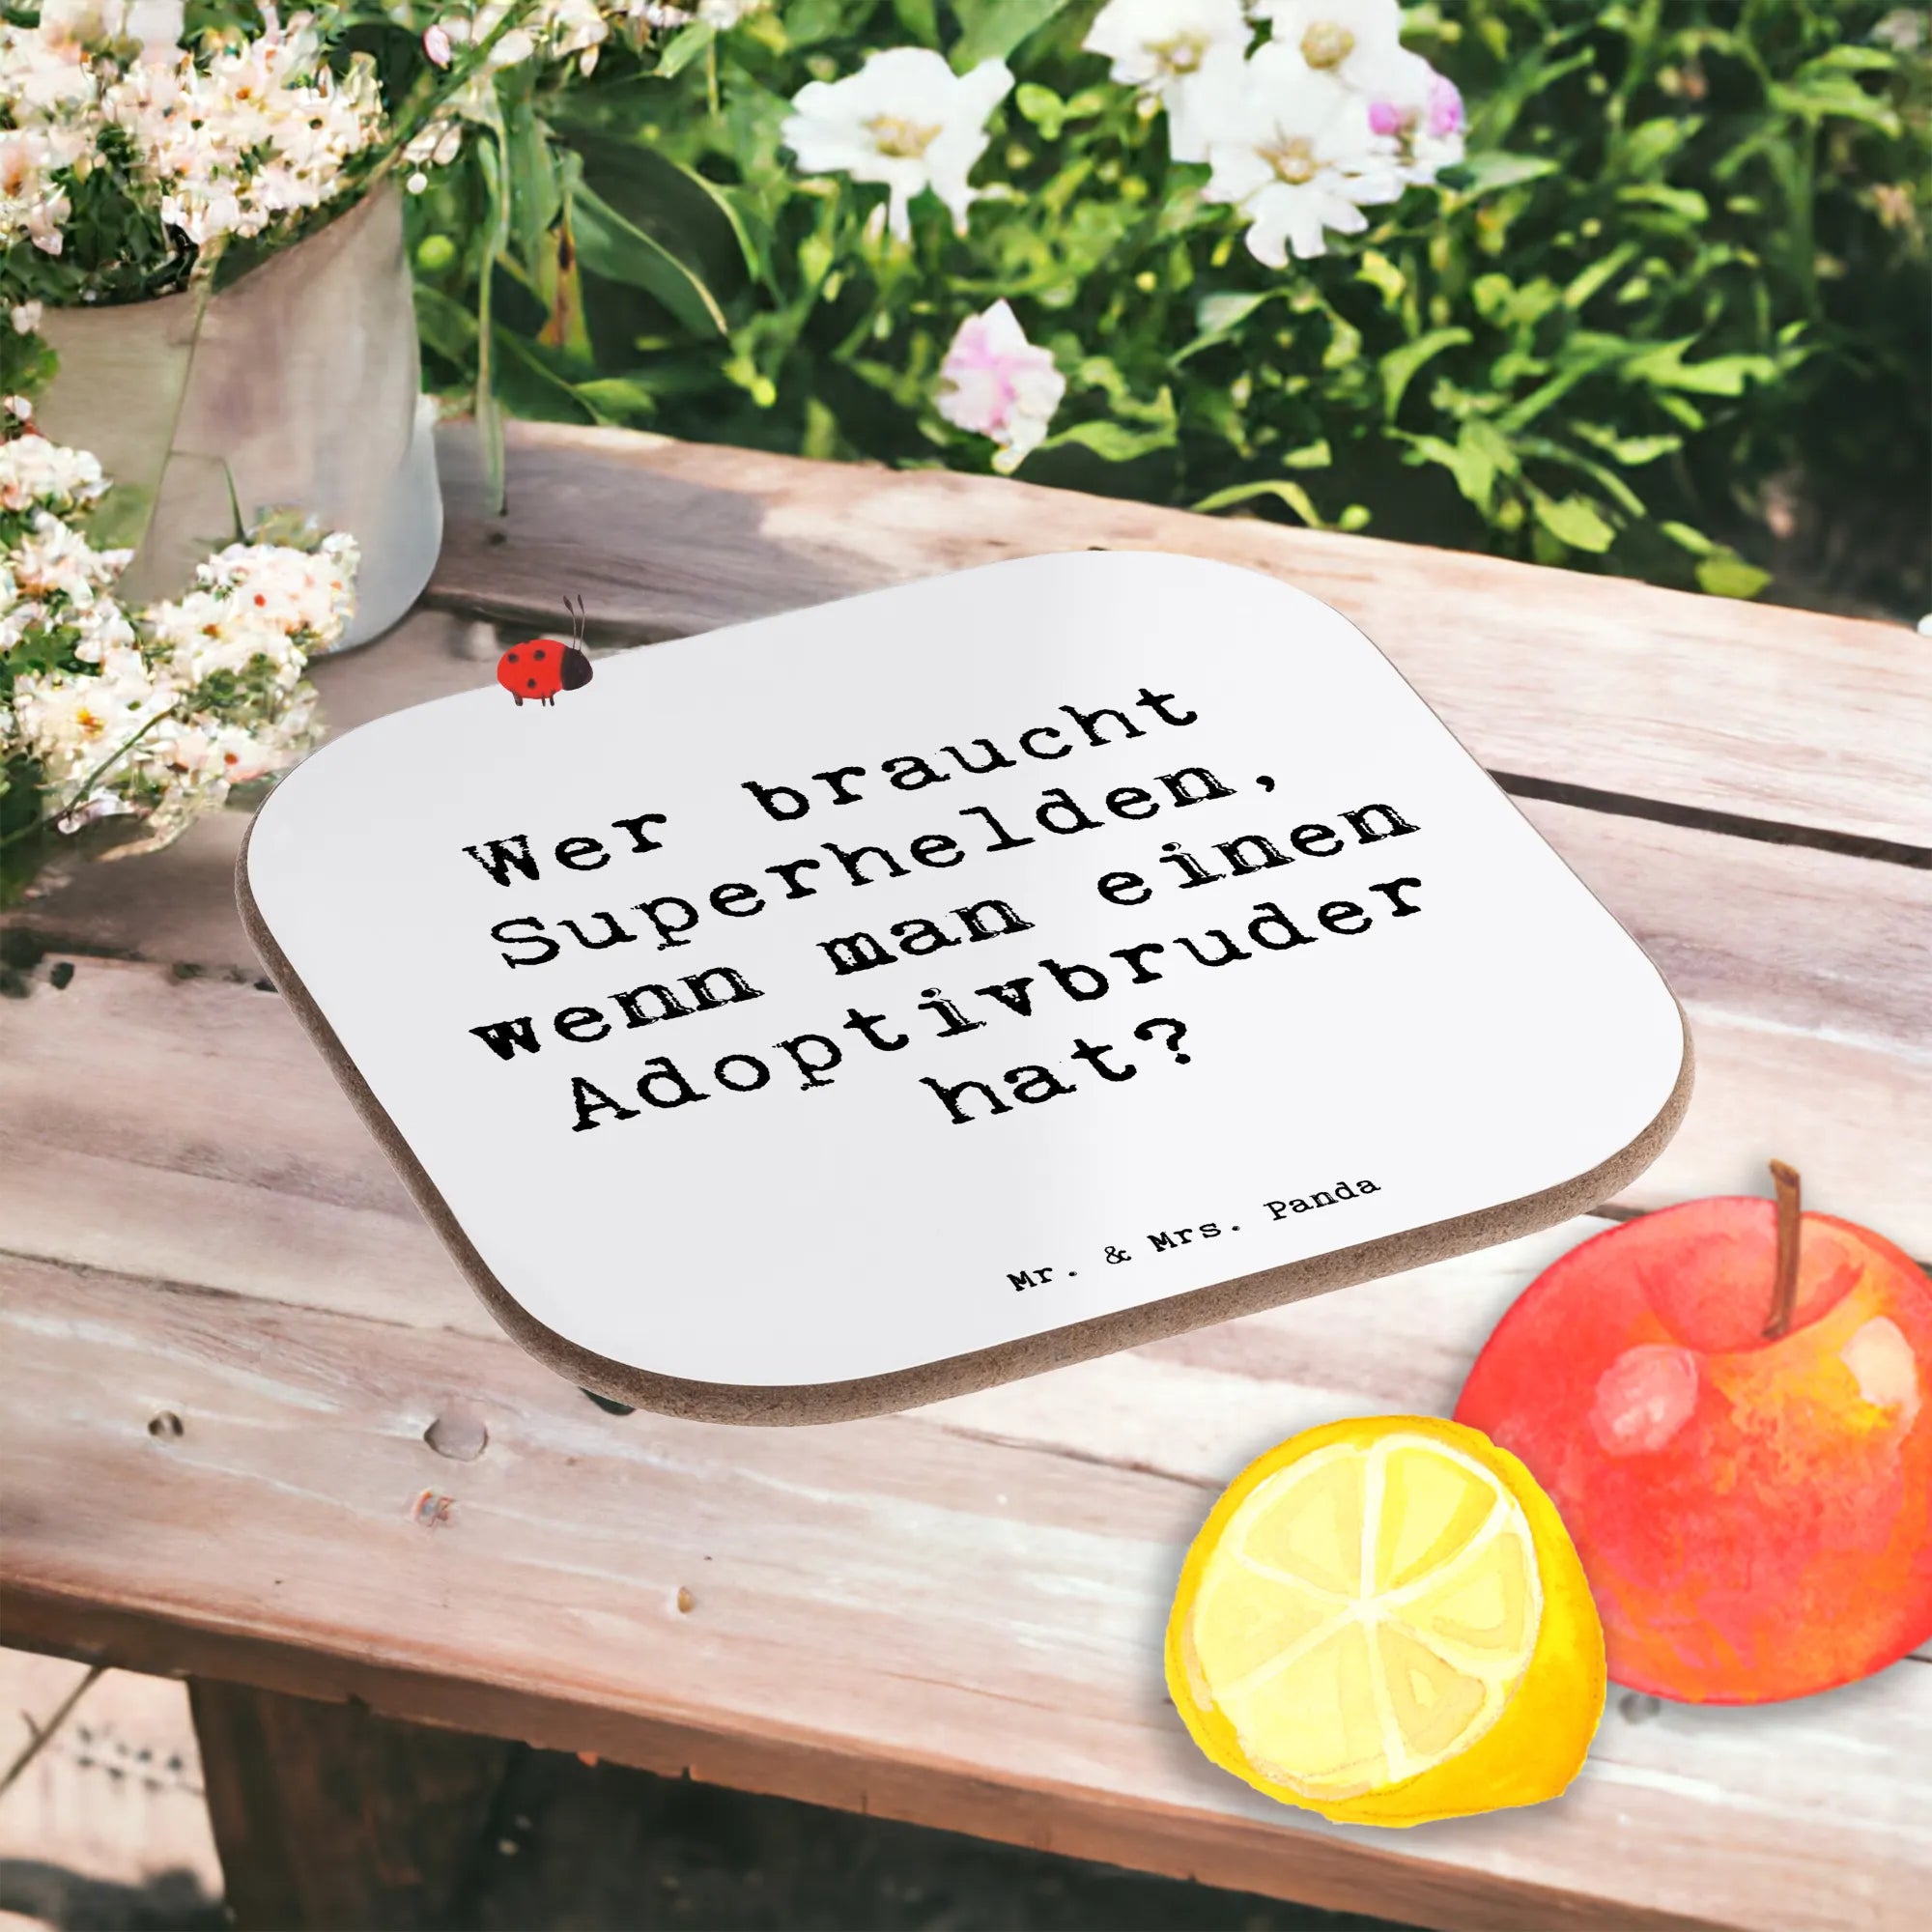 Wer braucht
Superhelden,
wenn man einen
Adoptivbruder
hat?
Mr. & Mrs. Panda